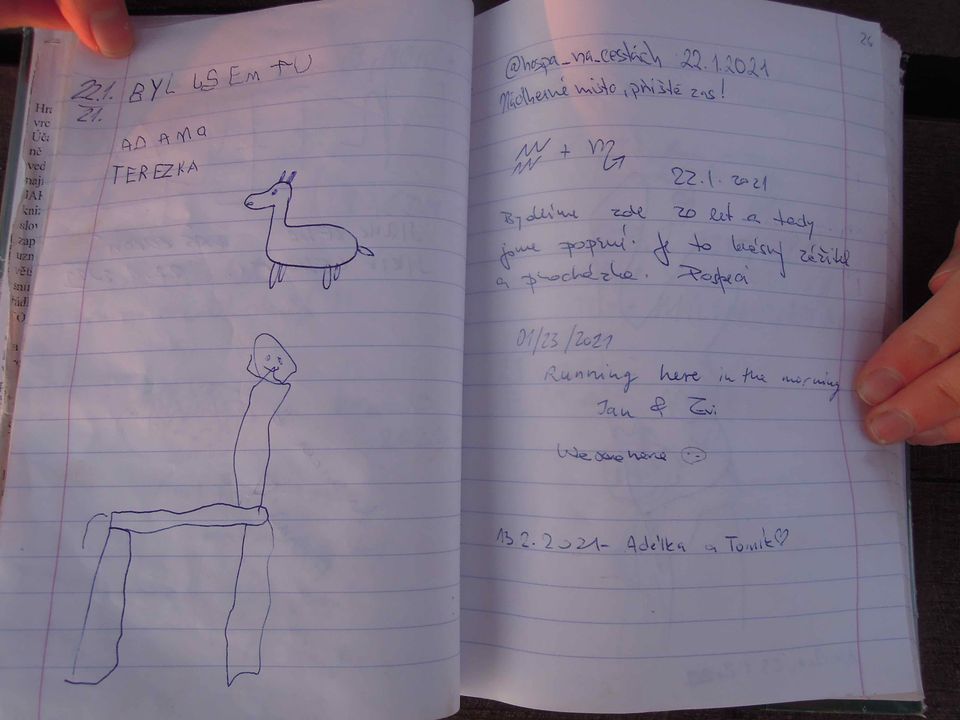 22.1.
21.
BYL JSEM TU
ADAMA
TEREZKA
26
@hospa_na_cestách 22.1.2021
Nádherné místo, příště zas!
+
22.1.2021
Bydlíme zde 20 let a tady ...
jsme poprvé. Je to krásný zážitek
a procházka.
01/23/2021
Running here in the morning
Jan &
We were here
13.2.2021- Adélka a Tomík♡